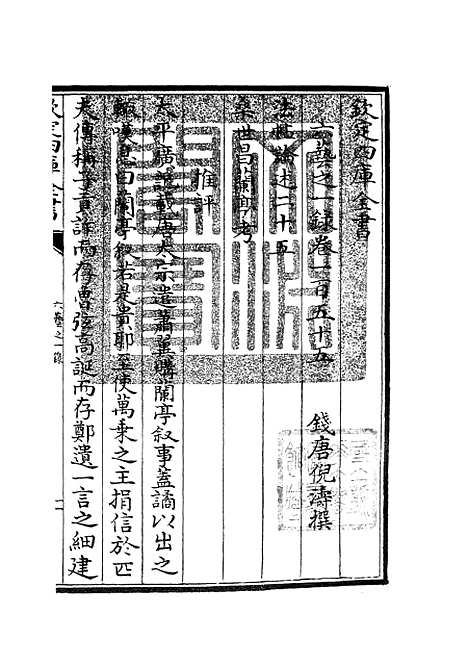 欽定四庫全書
六藝之一録卷一百五十五
錢唐倪濤撰
法帖論述二十五
桑世昌蘭亭考
推評
太平廣記載唐太宗遣蕭翼購蘭亭叙事蓋譎以出之
輒嘆息曰蘭亭叙若是貴耶至使萬乘之主捐信於匹
夫傳稱子貢詐而存魯弦高誕而存鄭遺一言之細建
欽定四庫全書
六藝之一録
一